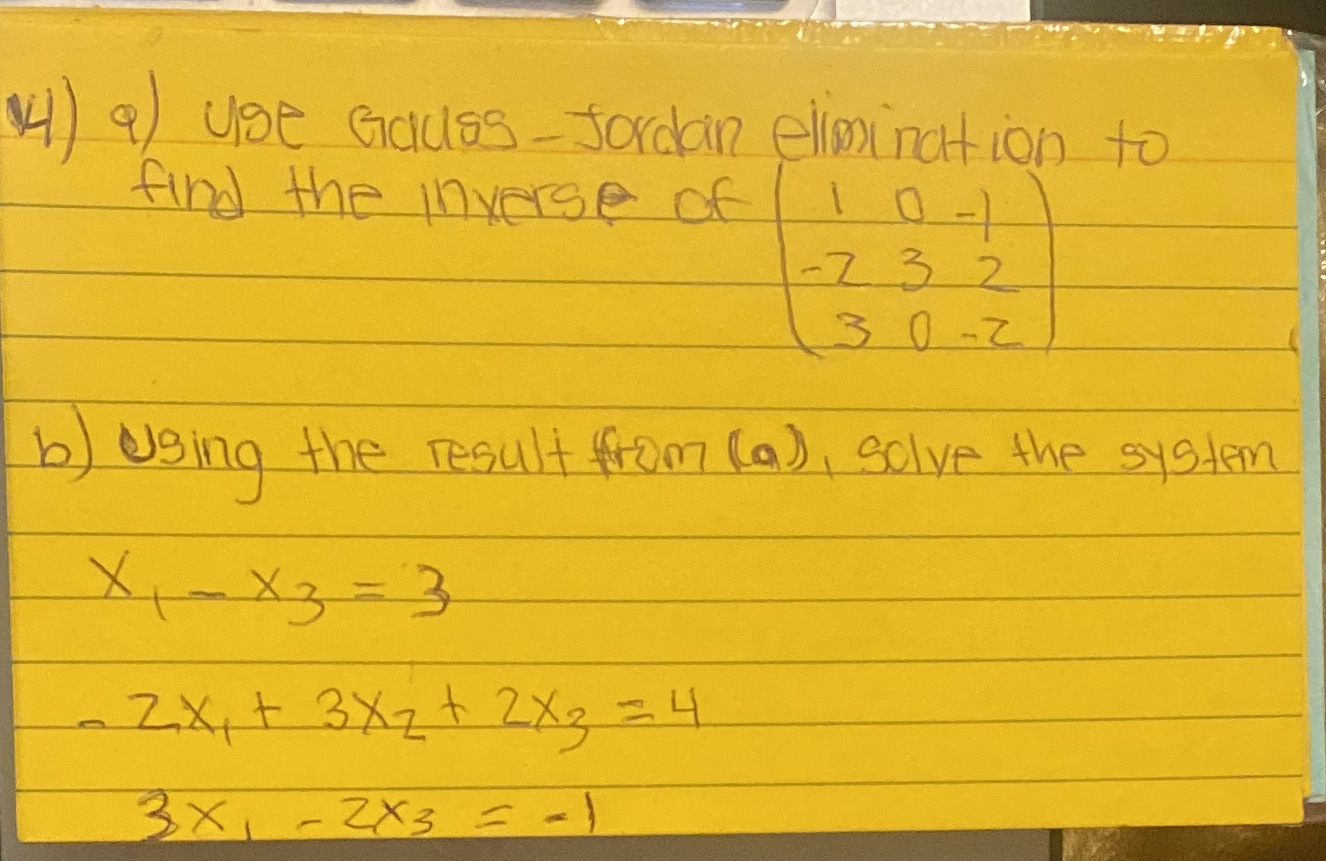 4) a) Use Gauss-Jordan elimination to
find the inverse of
1 0 -1
-2 3 2
3 0 -2
b) Using the result from (a), solve the system
x₁ - x₃ = 3
-2x₁ + 3x₂ + 2x₃ = 4
3x₁ - 2x₃ = -1